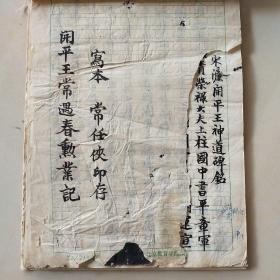 宋濂開平王神道碑銘
榮祿大夫上柱國中書平章軍
寫本 常任俠印存
開平王常遇春勳業記